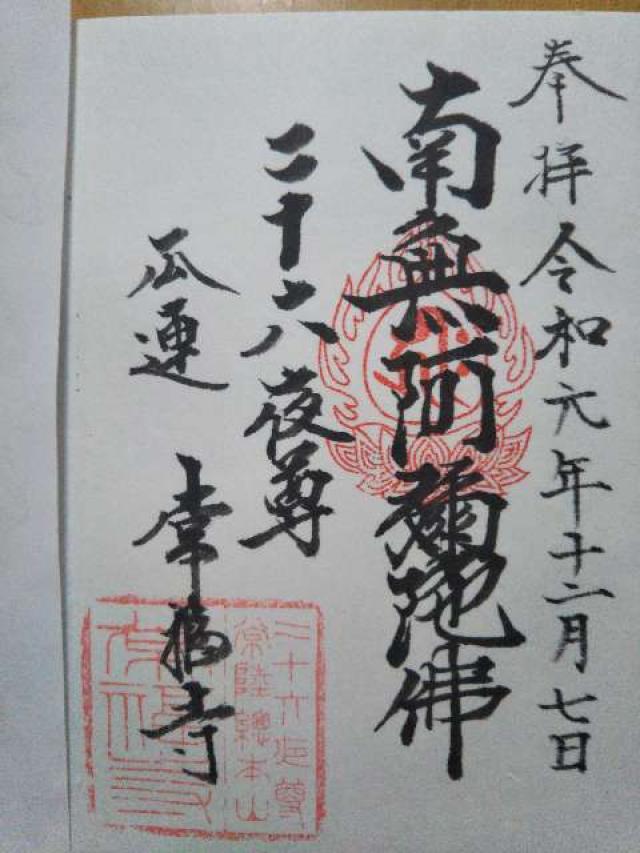 奉拝 令和元年十二月七日
南無阿彌陀佛
二十六夜尊
瓜連 常福寺
二十六夜尊
常陸總本山